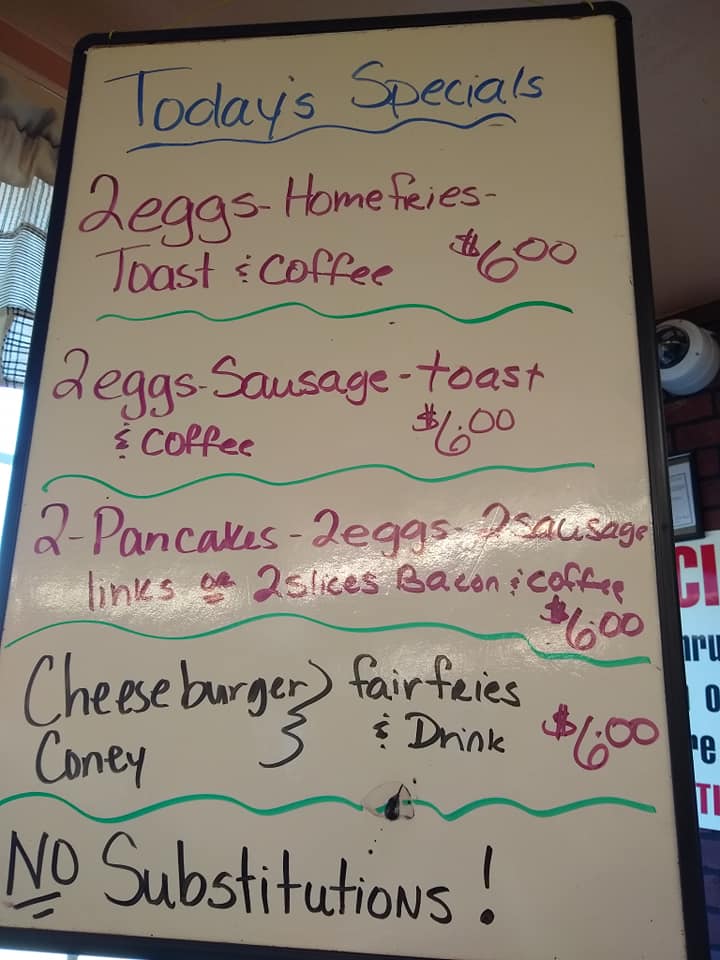 Today's Specials
2eggs- Homefries-
Toast & Coffee $6.00
2eggs-Sausage-toast
& Coffee $6.00
2-Pancakes-2eggs-2sausage
links or 2slices Bacon & coffee
$6.00
Cheeseburger } fairfries
Coney & Drink $6.00
NO Substitutions!